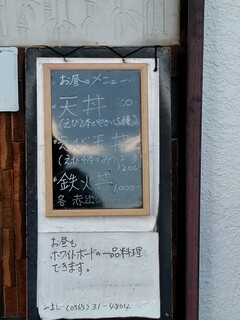 お昼のメニュー
・天丼
(えび2本とやさい5種)
・えび天丼
・鉄火丼 1000-
各 赤出し
お昼も
ホワイトボードの一品料理
できます。
(0565) 31-4804